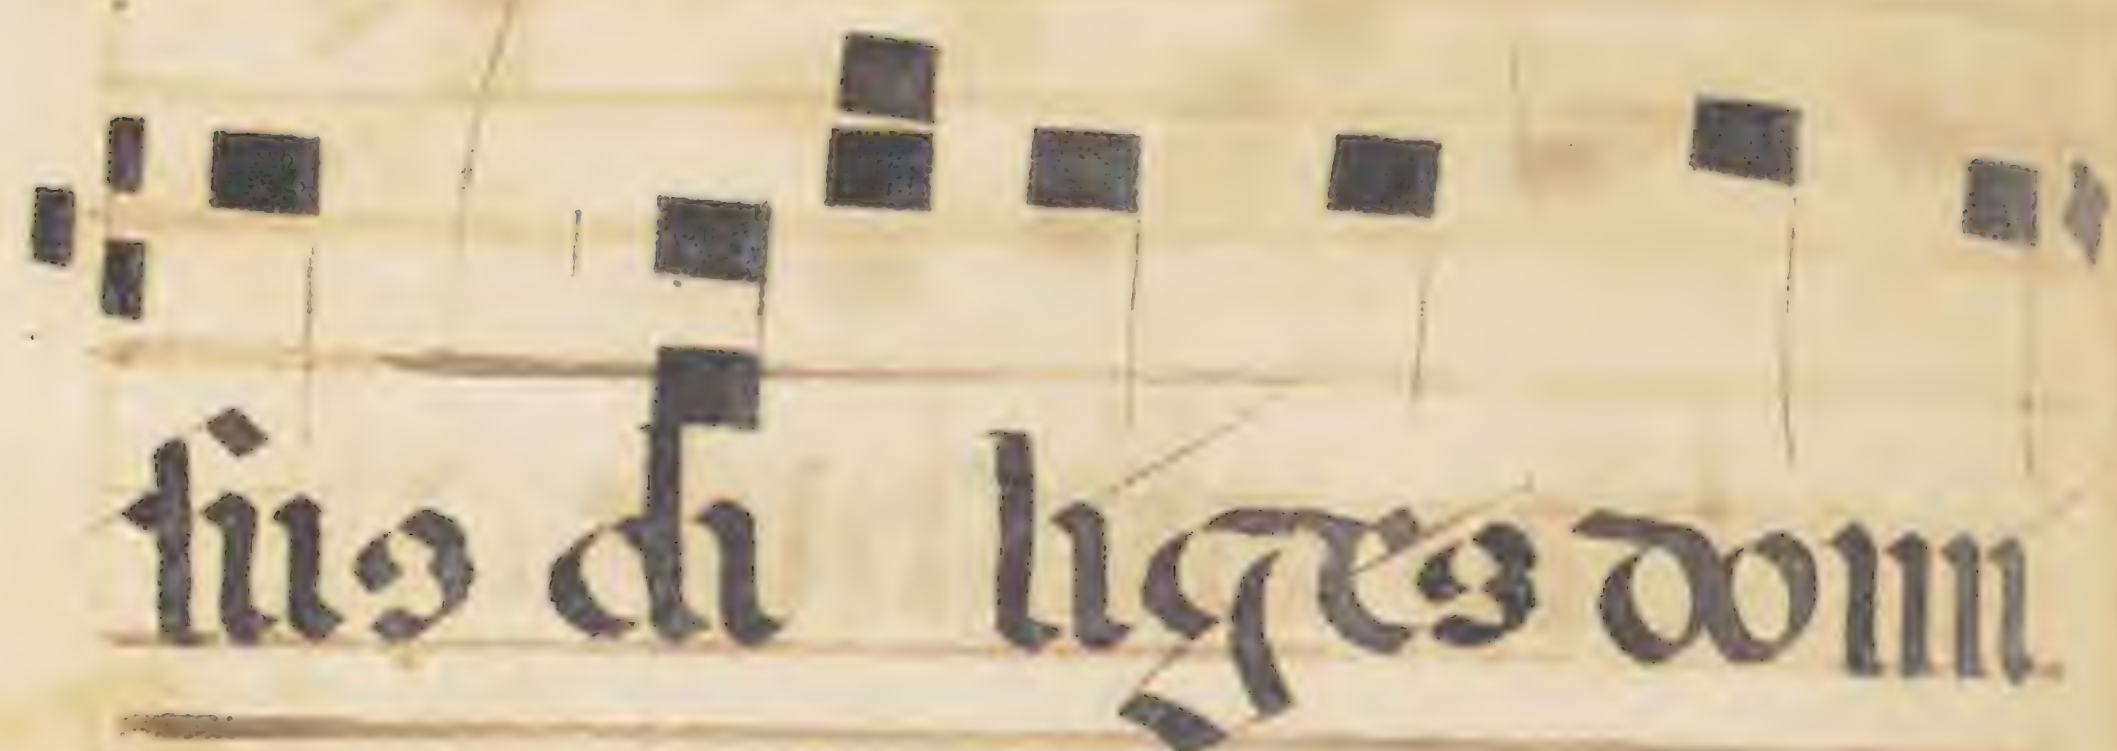 tus di liges domi